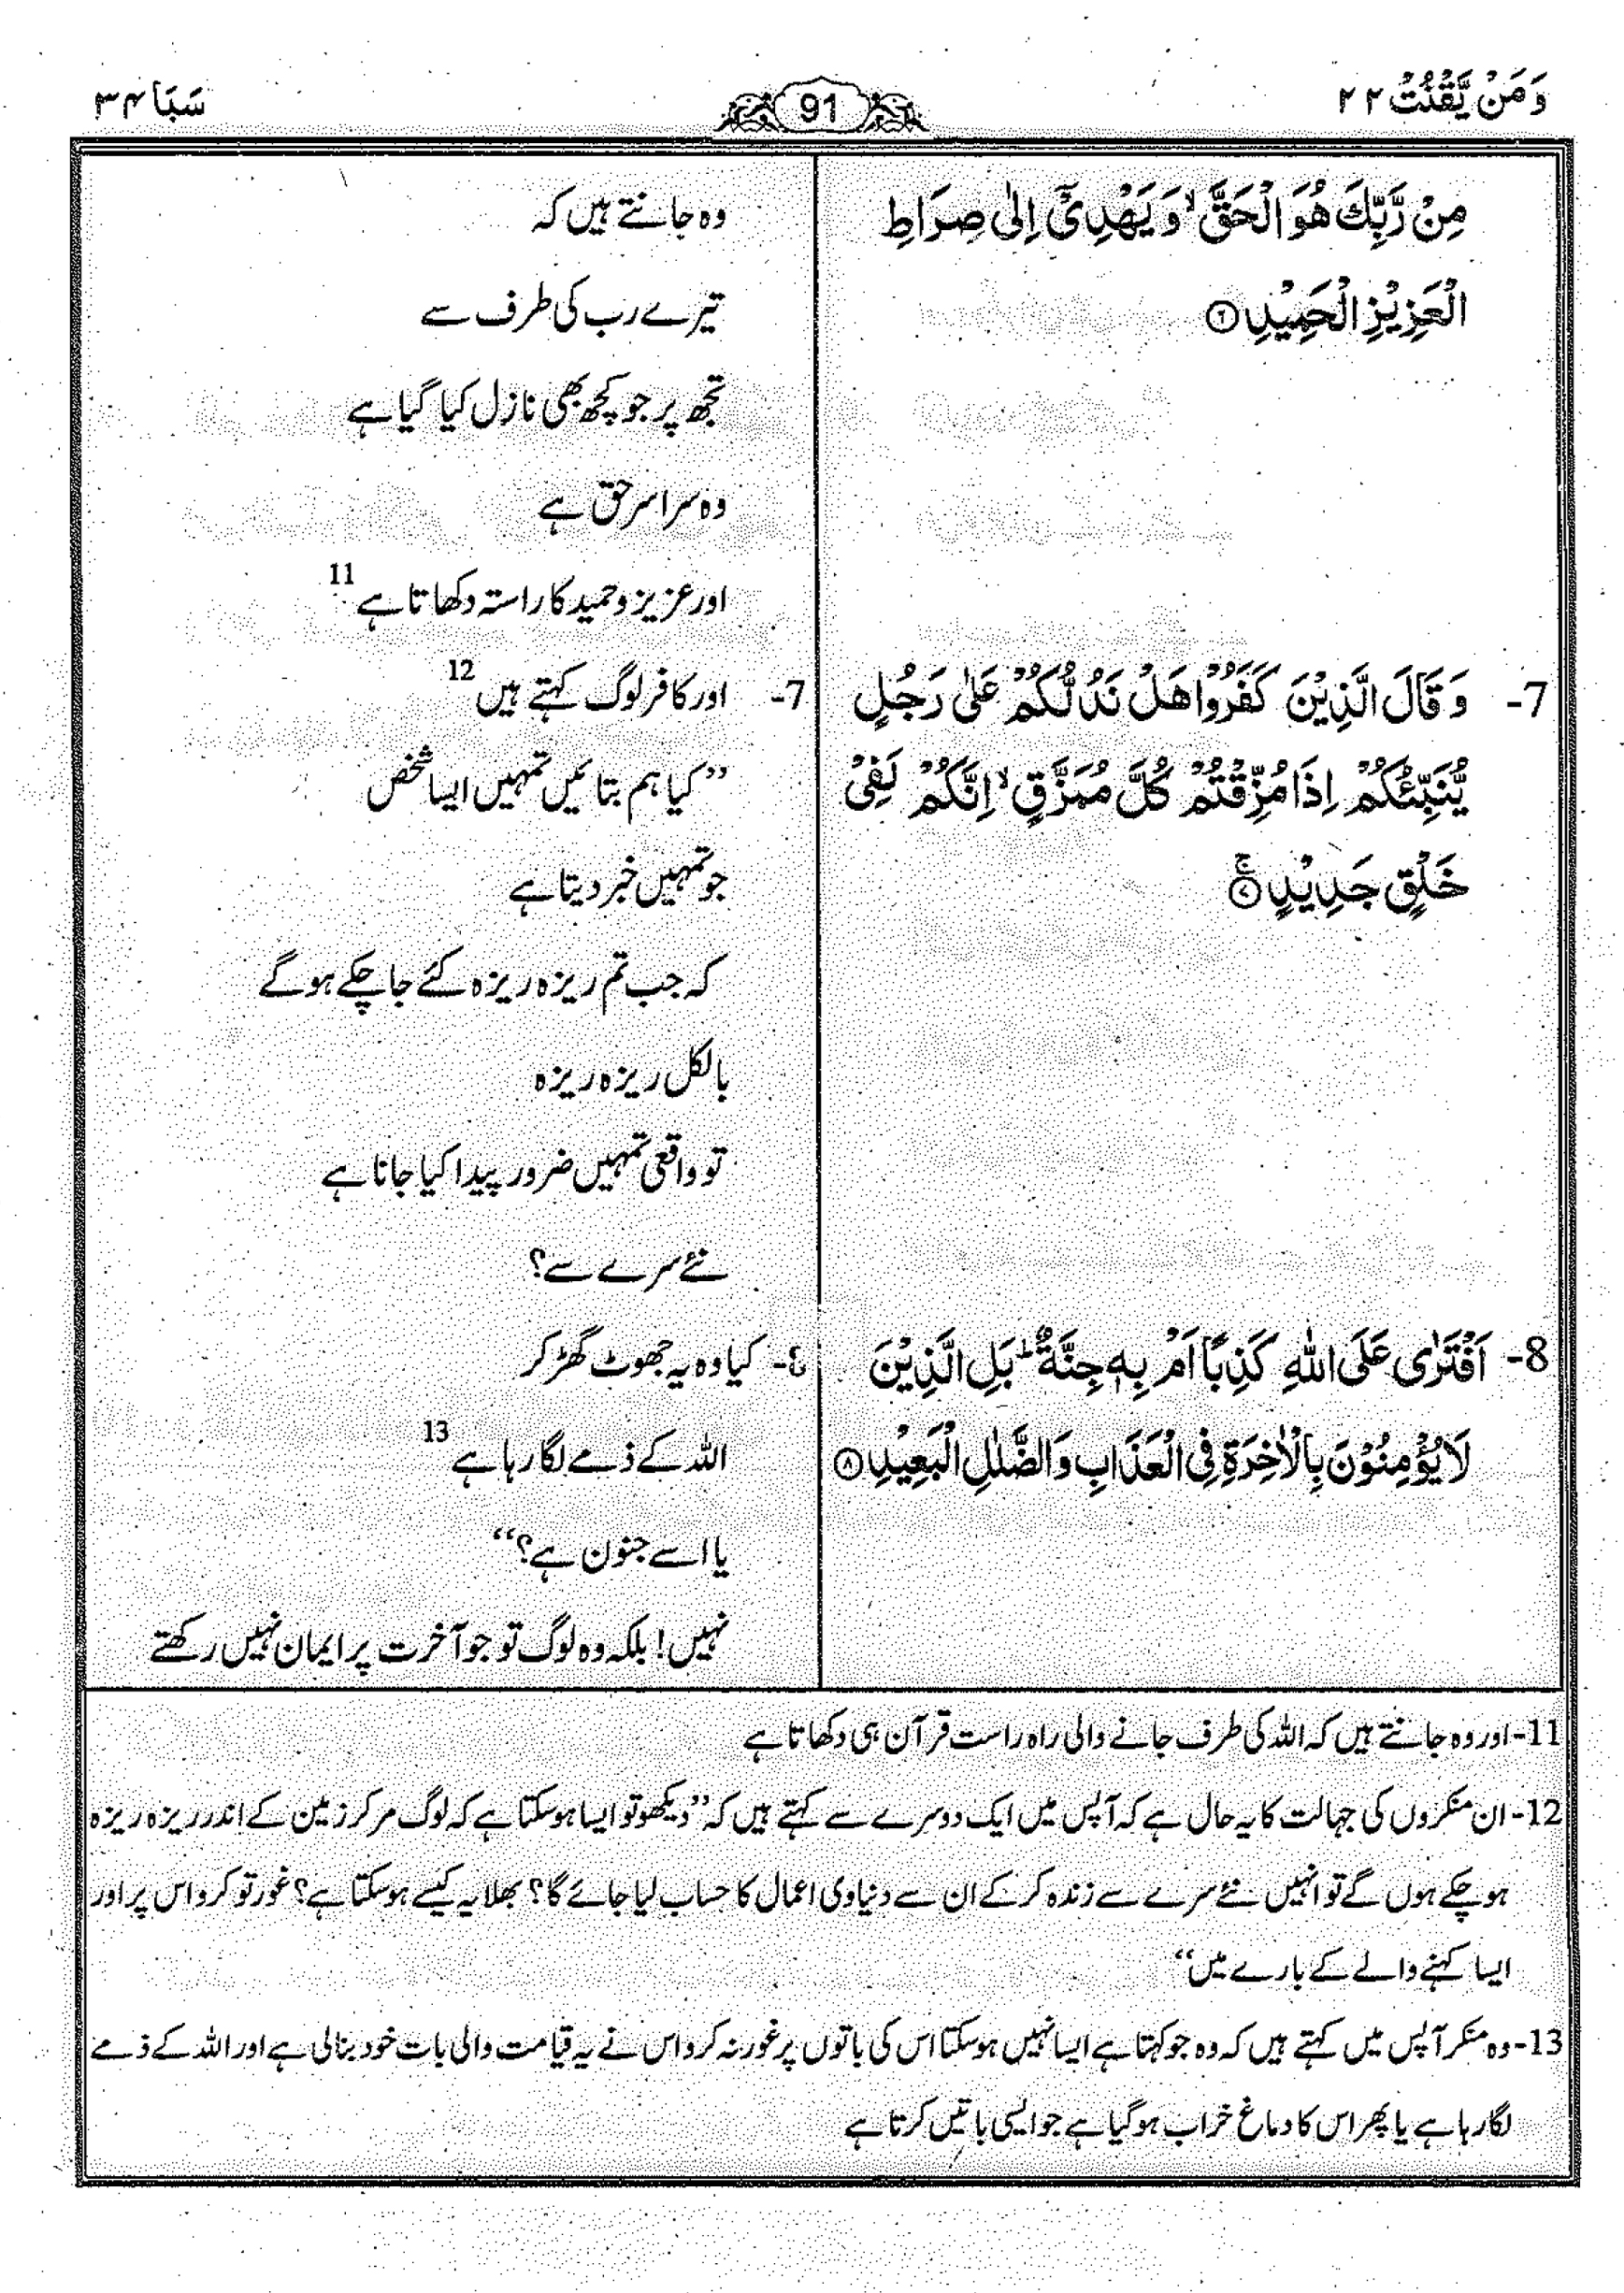 وَمَنْ يَّقْنُتْ ٢٢
91
سَبَا ٣٤
مِنْ رَّبِّكَ هُوَ الْحَقَّ ۙ وَ يَهْدِيْٓ اِلٰى صِرَاطِ
الْعَزِيْزِ الْحَمِيْدِ ۞٦
7- وَ قَالَ الَّذِيْنَ كَفَرُوْا هَلْ نَدُلُّكُمْ عَلٰى رَجُلٍ
يُّنَبِّئُكُمْ اِذَا مُزِّقْتُمْ كُلَّ مُمَزَّقٍ ۙ اِنَّكُمْ لَفِيْ
خَلْقٍ جَدِيْدٍ ۚ۞٧
8- اَفْتَرٰى عَلَى اللّٰهِ كَذِبًا اَمْ بِهٖ جِنَّةٌ ؕ بَلِ الَّذِيْنَ
لَا يُؤْمِنُوْنَ بِالْاٰخِرَةِ فِي الْعَذَابِ وَ الضَّلٰلِ الْبَعِيْدِ ۞٨
وہ جانتے ہیں کہ
تیرے رب کی طرف سے
تجھ پر جو کچھ بھی نازل کیا گیا ہے
وہ سراسر حق ہے
اور عزیز و حمید کا راستہ دکھاتا ہے 11
7- اور کافر لوگ کہتے ہیں 12
”کیا ہم بتائیں تمہیں ایسا شخص
جو تمہیں خبر دیتا ہے
کہ جب تم ریزہ ریزہ کئے جا چکے ہو گے
بالکل ریزہ ریزہ
تو واقعی تمہیں ضرور پیدا کیا جانا ہے
نئے سرے سے؟
8- کیا وہ یہ جھوٹ گھڑ کر
اللہ کے ذمے لگا رہا ہے 13
یا اسے جنون ہے؟“
نہیں! بلکہ وہ لوگ تو جو آخرت پر ایمان نہیں رکھتے
11- اور وہ جانتے ہیں کہ اللہ کی طرف جانے والی راہ راست قرآن ہی دکھاتا ہے
12- ان منکروں کی جہالت کا یہ حال ہے کہ آپس میں ایک دوسرے سے کہتے ہیں کہ ”دیکھو تو ایسا ہو سکتا ہے کہ لوگ مر کر زمین کے اندر ریزہ ریزہ
ہو چکے ہوں گے تو انہیں نئے سرے سے زندہ کر کے ان سے دنیاوی اعمال کا حساب لیا جائے گا؟ بھلا یہ کیسے ہو سکتا ہے؟ غور تو کرو اس پر اور
ایسا کہنے والے کے بارے میں“
13- وہ منکر آپس میں کہتے ہیں کہ وہ جو کہتا ہے ایسا نہیں ہو سکتا اس کی باتوں پر غور نہ کرو اس نے یہ قیامت والی بات خود بنالی ہے اور اللہ کے ذمے
لگا رہا ہے یا پھر اس کا دماغ خراب ہو گیا ہے جو ایسی باتیں کرتا ہے